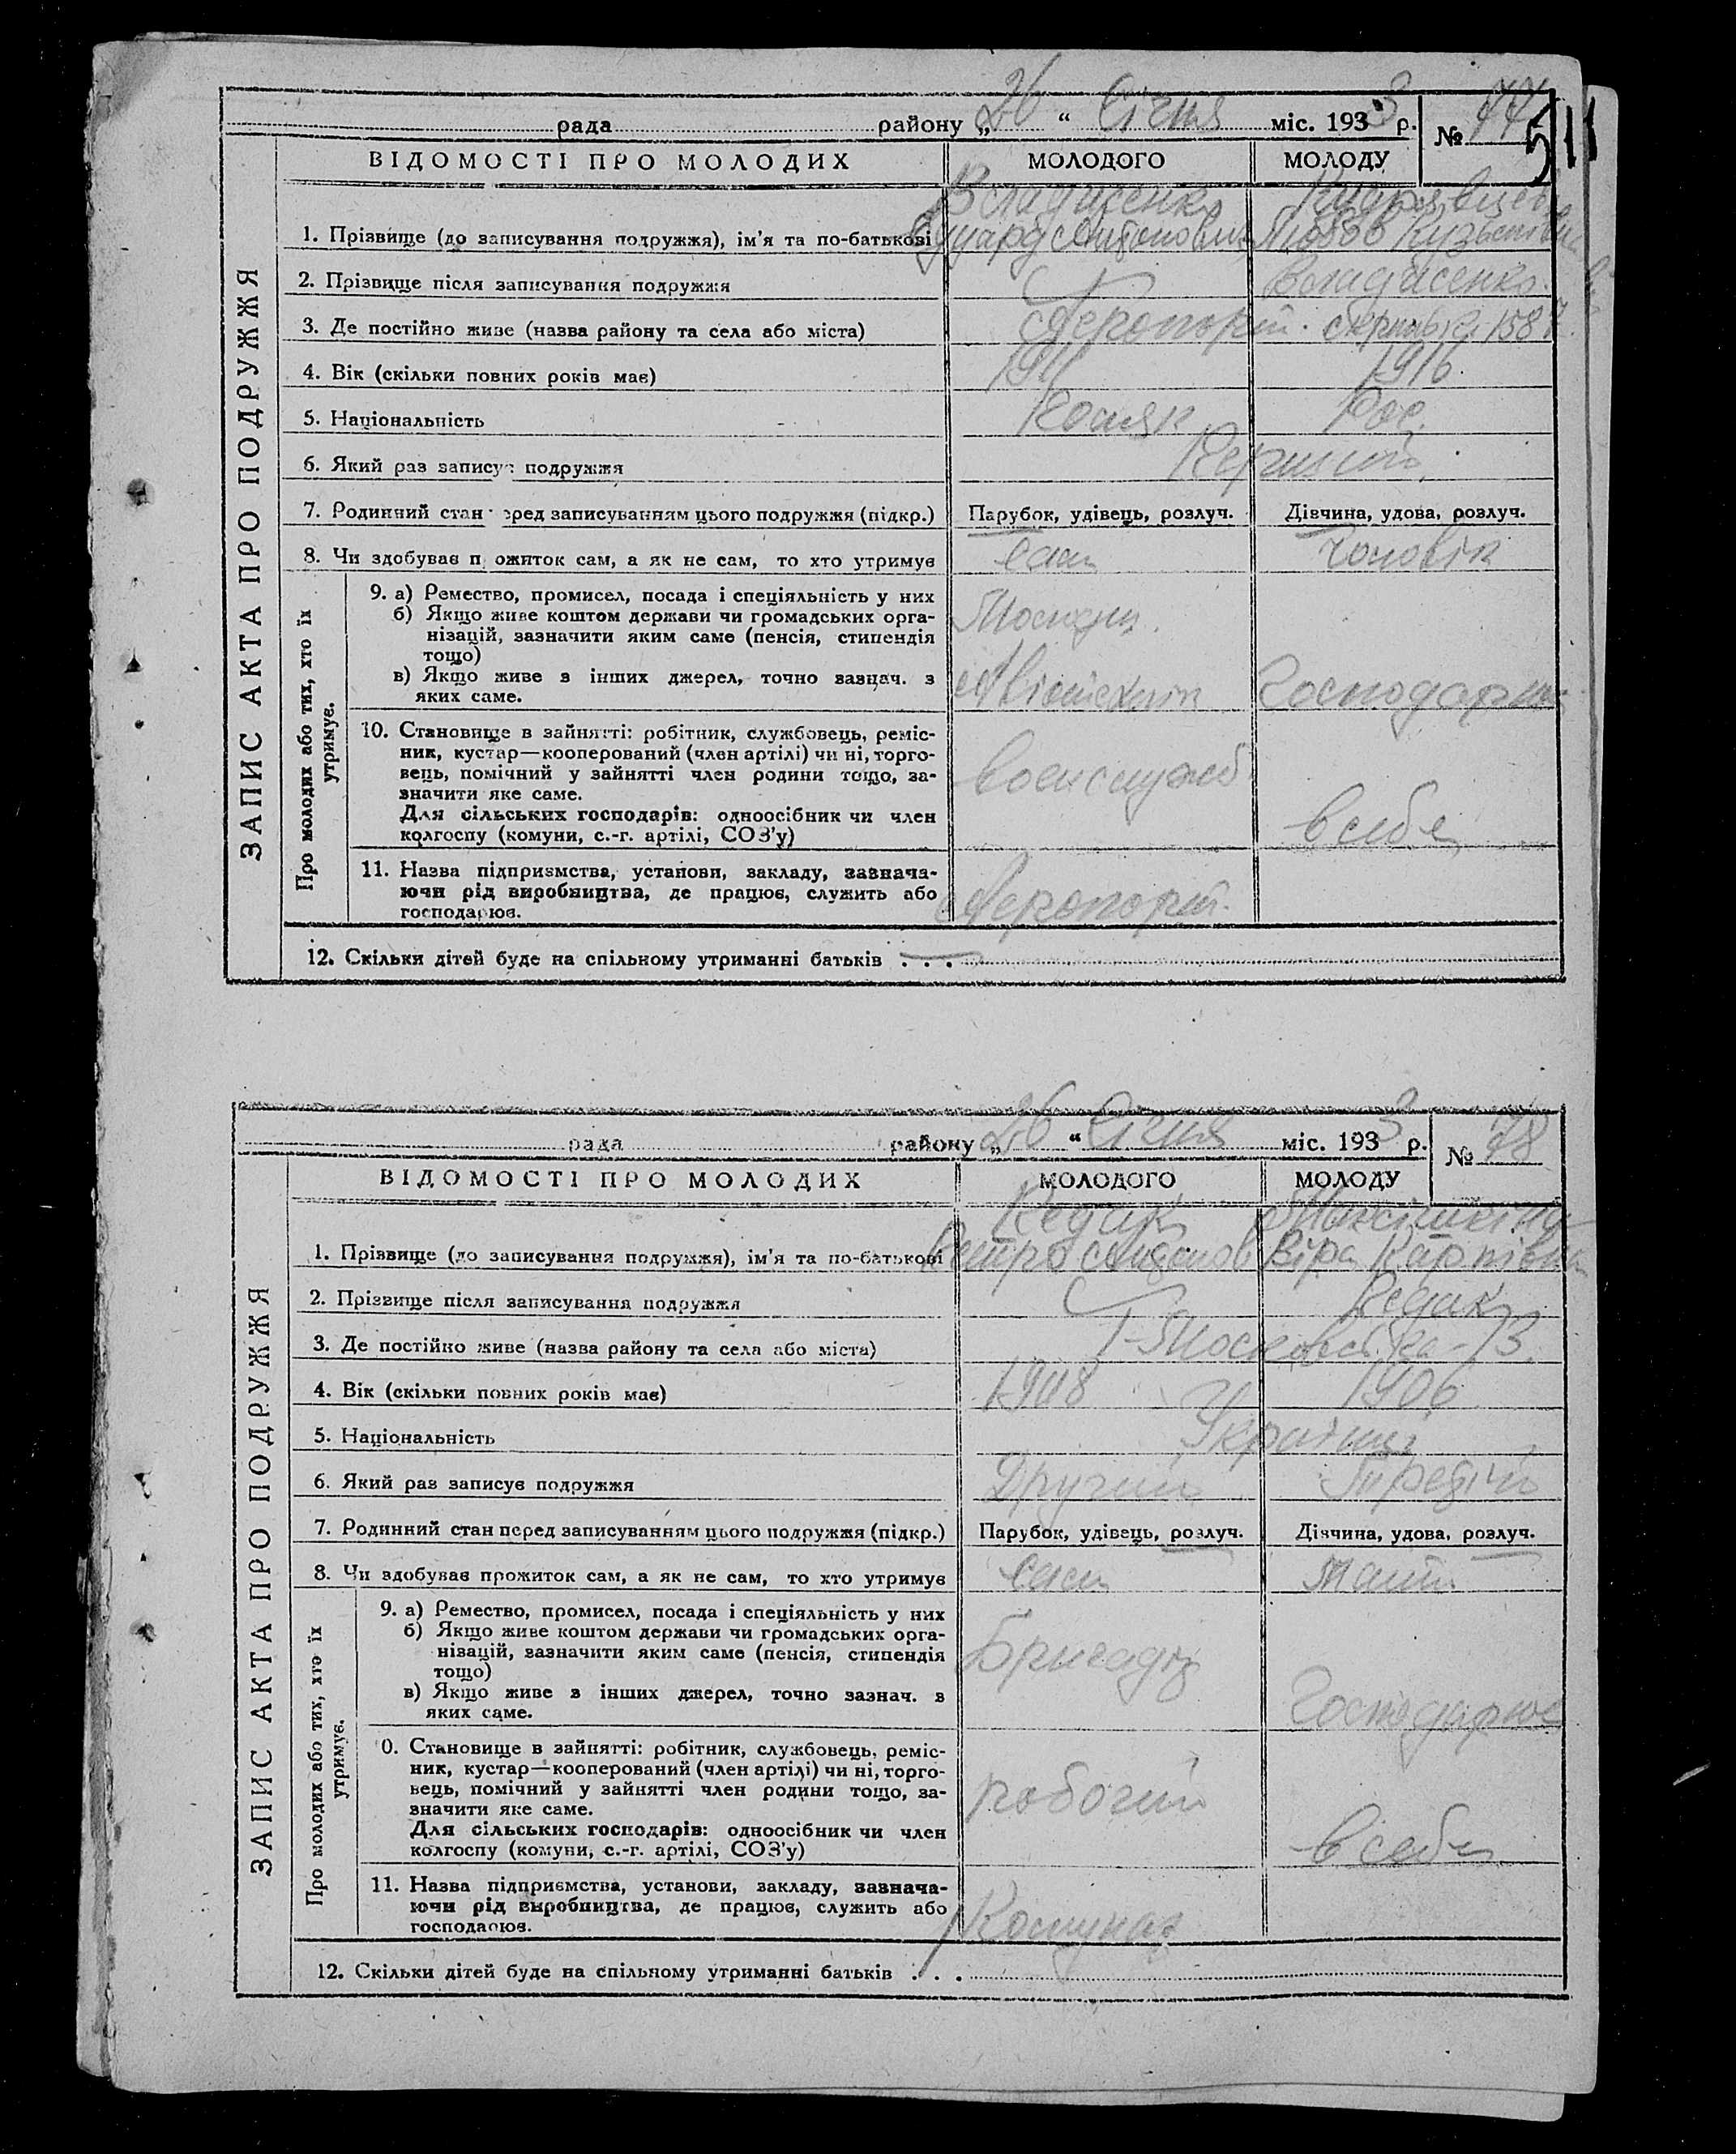 рада району „26 “ Січня міс. 1933 р. № 77
511
ВІДОМОСТІ ПРО МОЛОДИХ МОЛОДОГО МОЛОДУ
ЗАПИС АКТА ПРО ПОДРУЖЖЯ
1. Прізвище (до записування подружжя), ім'я та по-батькові Едуард Антонович Любов Кузьмівна
2. Прізвище після записування подружжя
3. Де постійно живе (назва району та села або міста) Аеропорт. 158
4. Вік (скільки повних років має) 1911 1916.
5. Національність Поляк Рос.
6. Який раз записує подружжя Перший
7. Родинний стан перед записуванням цього подружжя (підкр.) Парубок, удівець, розлуч. Дівчина, удова, розлуч.
8. Чи здобував прожиток сам, а як не сам, то хто утримує сам Чоловік
Про молодих або тих, хто їх утримує.
9. а) Ремество, промисел, посада і спеціяльність у них
б) Якщо живе коштом держави чи громадських орга-
нізацій, зазначити яким саме (пенсія, стипендія
тощо)
в) Якщо живе з інших джерел, точно зазнач. з
яких саме. Авіотехнік Господарює
10. Становище в зайнятті: робітник, службовець, реміс-
ник, кустар—кооперований (член артілі) чи ні, торго-
вець, помічний у зайнятті член родини тощо, за-
значити яке саме. воєнслужб
Для сільських господарів: одноосібник чи член
колгоспу (комуни, с.-г. артілі, СОЗ'у) в себе
11. Назва підприємства, установи, закладу, зазнача-
ючи рід виробництва, де працює, служить або
господарює. Аеропорт.
12. Скільки дітей буде на спільному утриманні батьків . . .
рада району „26 “ Січня міс. 1933 р. № 78
ВІДОМОСТІ ПРО МОЛОДИХ МОЛОДОГО МОЛОДУ
ЗАПИС АКТА ПРО ПОДРУЖЖЯ
1. Прізвище (до записування подружжя), ім'я та по-батькові Петро Антонов Віра Карпівна
2. Прізвище після записування подружжя
3. Де постійно живе (назва району та села або міста) 1-Московська-13.
4. Вік (скільки повних років має) 1908 1906
5. Національність Українці
6. Який раз записує подружжя Другий Третій
7. Родинний стан перед записуванням цього подружжя (підкр.) Парубок, удівець, розлуч. Дівчина, удова, розлуч.
8. Чи здобував прожиток сам, а як не сам, то хто утримує сам
Про молодих або тих, хто їх утримує.
9. а) Ремество, промисел, посада і спеціяльність у них
б) Якщо живе коштом держави чи громадських орга-
нізацій, зазначити яким саме (пенсія, стипендія
тощо) Бригадір
в) Якщо живе з інших джерел, точно зазнач. з
яких саме. Господарює
0. Становище в зайнятті: робітник, службовець, реміс-
ник, кустар—кооперований (член артілі) чи ні, торго-
вець, помічний у зайнятті член родини тощо, за-
значити яке саме. робочий
Для сільських господарів: одноосібник чи член
колгоспу (комуни, с.-г. артілі, СОЗ'у) в себе
11. Назва підприємства, установи, закладу, зазнача-
ючи рід виробництва, де працює, служить або
господарює. Комунар
12. Скільки дітей буде на спільному утриманні батьків . . .